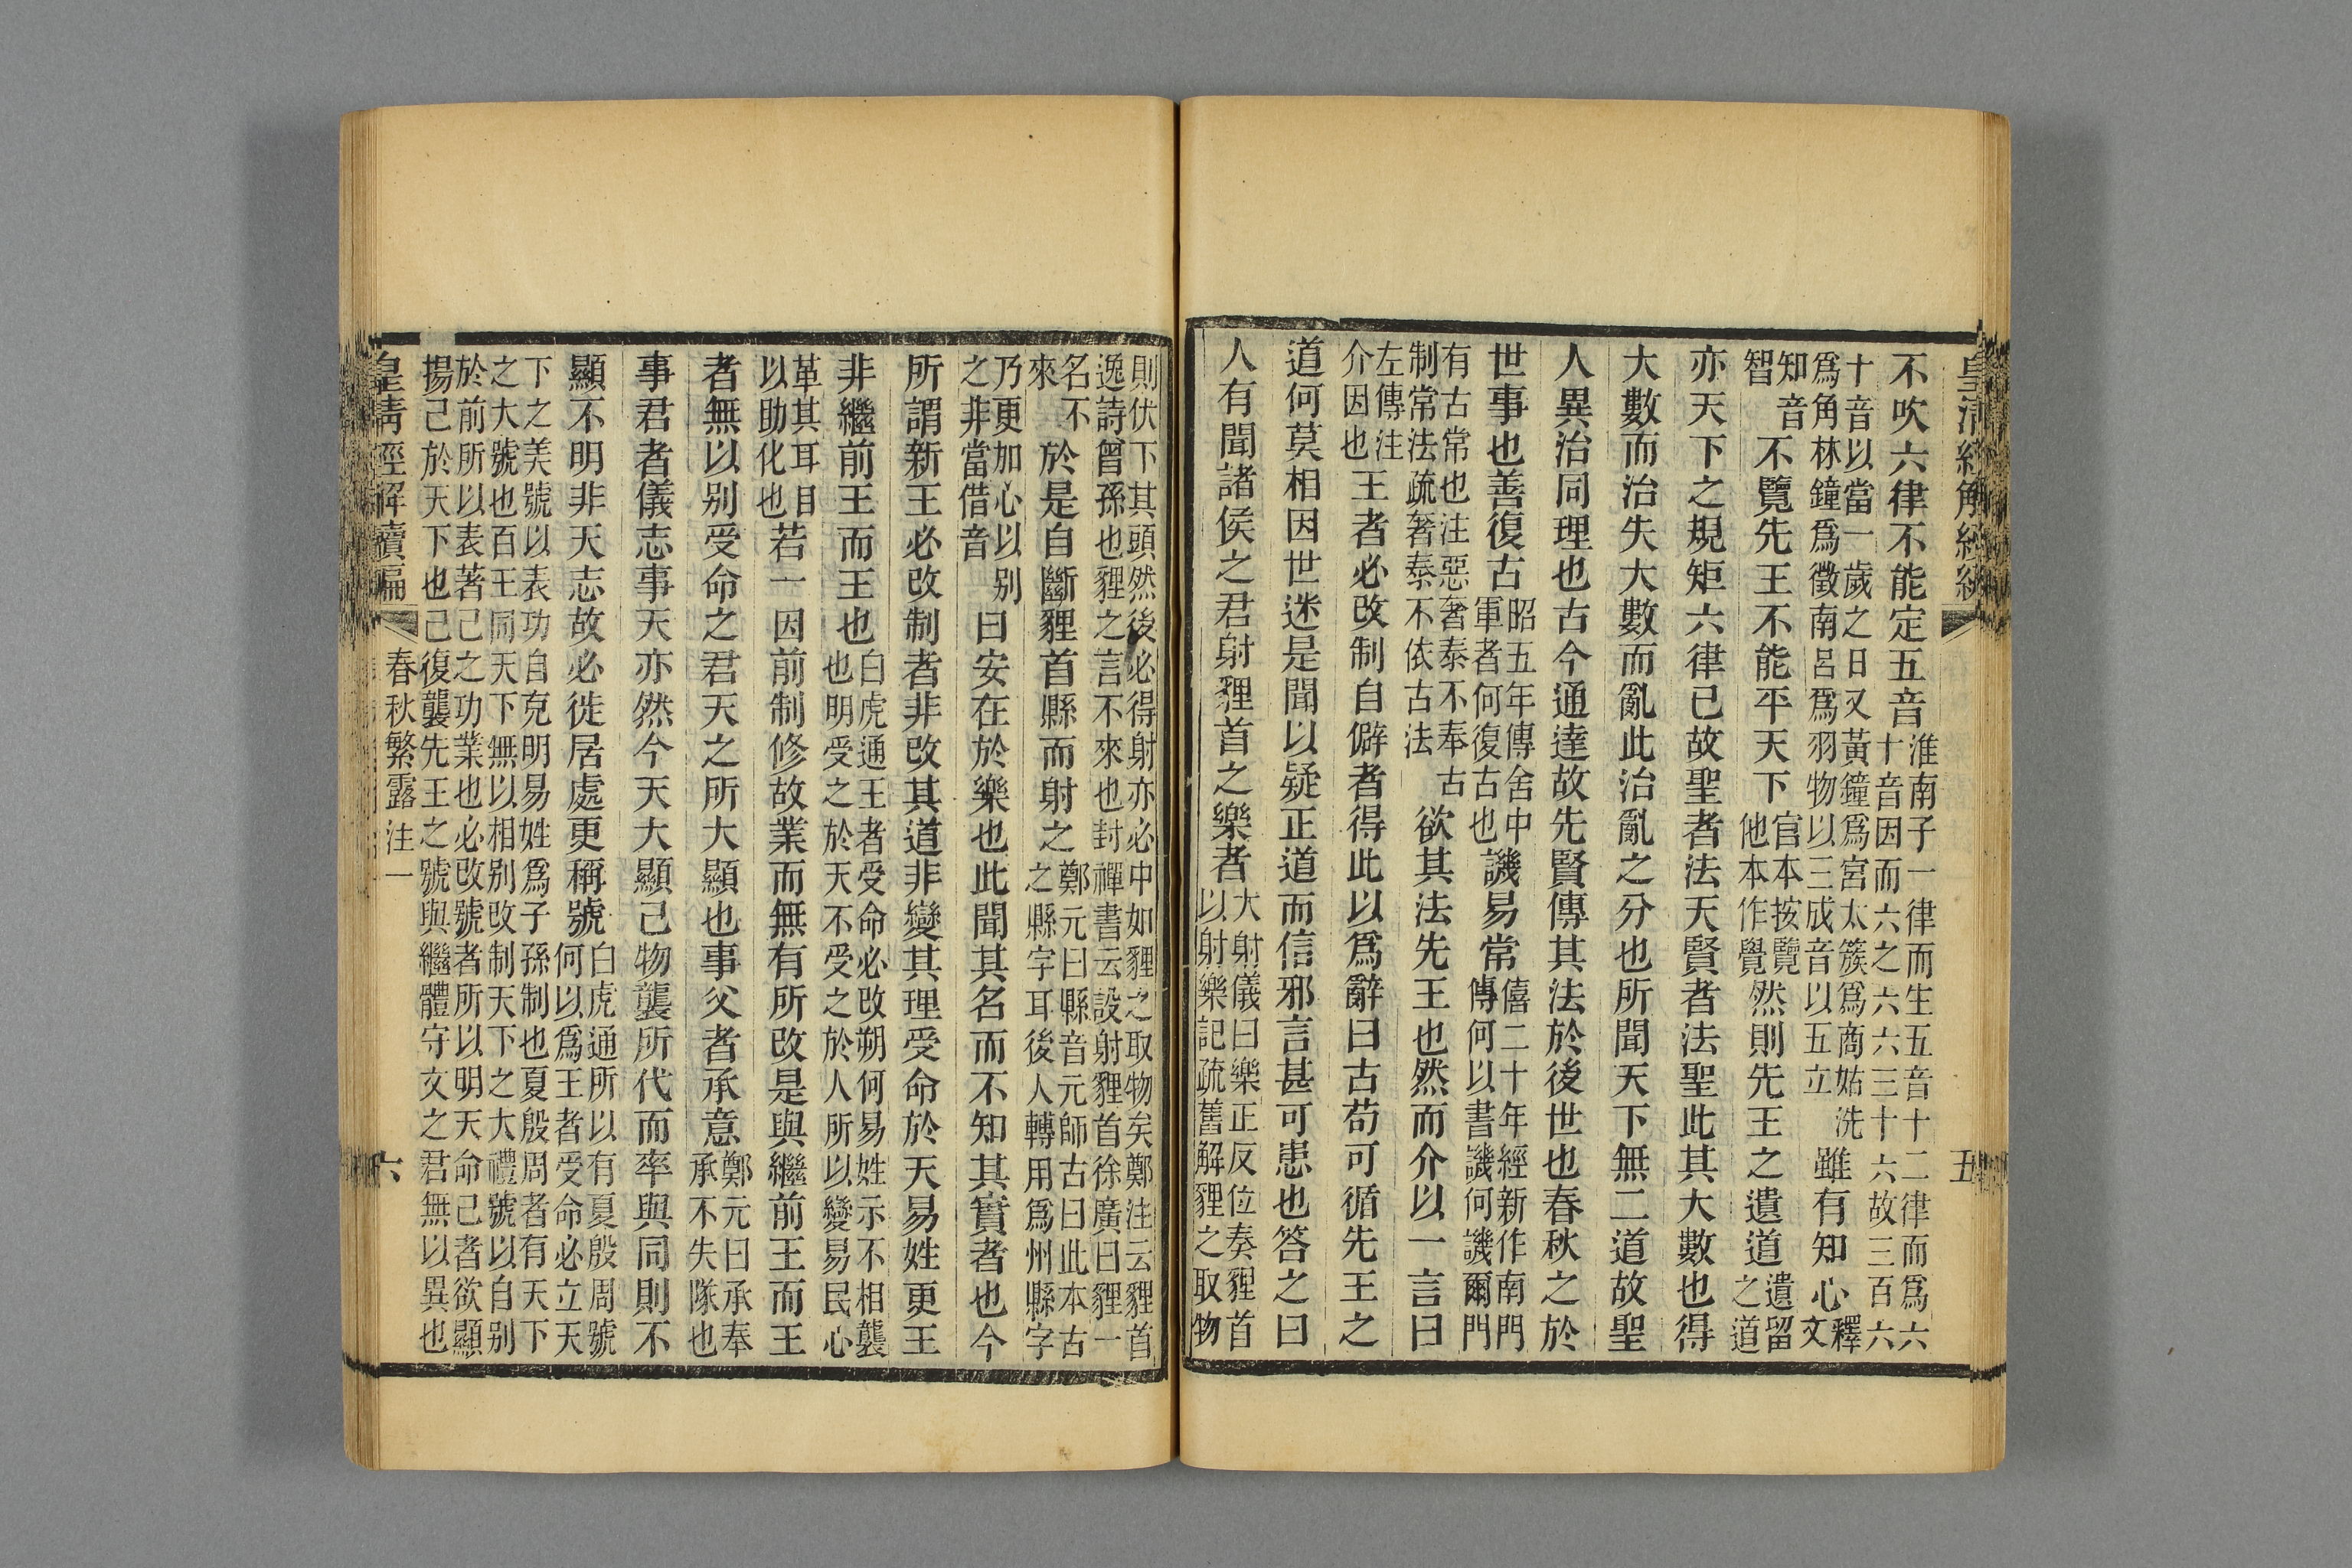 皇清經解經編 五
不吹六律不能定五音淮南子一律而生五音十二律而爲六十音因而六之六六三十六故三百六
十音以當一歲之日又黃鐘爲宮太簇爲商姑洗爲角林鐘爲徵南呂爲羽物以三成音以五立雖有知心釋文
知音智不覽先王不能平天下官本按覽他本作覺然則先王之遺道遺留之道
亦天下之規矩六律已故聖者法天賢者法聖此其大數也得
大數而治失大數而亂此治亂之分也所聞天下無二道故聖
人異治同理也古今通達故先賢傳其法於後世也春秋之於
世事也善復古昭五年傳舍中軍者何復古也譏易常僖二十年經新作南門傳何以書譏何譏爾門
有古常也注惡奢泰不奉古制常法疏奢泰不依古法欲其法先王也然而介以一言曰
左傳注介因也王者必改制自僻者得此以爲辭曰古苟可循先王之
道何莫相因世迷是聞以疑正道而信邪言甚可患也答之曰
人有聞諸侯之君射貍首之樂者大射儀曰樂正反位奏貍首以射樂記疏舊解貍之取物
則伏下其頭然後必得射亦必中如貍之取物矣鄭注云貍首逸詩曾孫也貍之言不來也封禪書云設射貍首徐廣曰貍一
名不來於是自斷貍首縣而射之鄭元曰縣音元師古曰此本古之縣字耳後人轉用爲州縣字
乃更加心以别之非當借音曰安在於樂也此聞其名而不知其實者也今
所謂新王必改制者非改其道非變其理受命於天易姓更王
非繼前王而王也白虎通王者受命必改朔何易姓示不相襲也明受之於天不受之於人所以變易民心
革其耳目以助化也若一因前制修故業而無有所改是與繼前王而王
者無以别受命之君天之所大顯也事父者承意鄭元曰承奉承不失隊也
事君者儀志事天亦然今天大顯己物襲所代而率與同則不
顯不明非天志故必徙居處更稱號白虎通所以有夏殷周號何以爲王者受命必立天
下之美號以表功自克明易姓爲子孫制也夏殷周者有天下之大號也百王同天下無以相别改制天下之大禮號以自别
於前所以表著己之功業也必改號者所以明天命己者欲顯揚己於天下也己復襲先王之號與繼體守文之君無以異也
皇清經解續編 春秋繁露注一 六